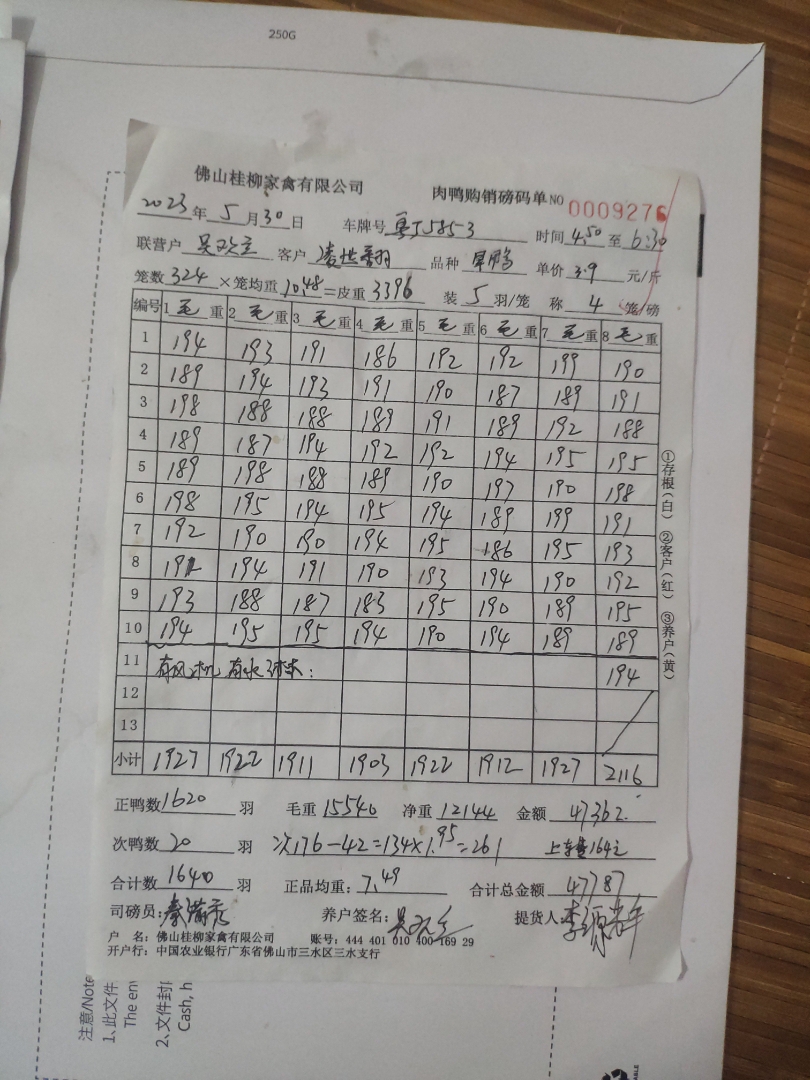 250G
佛山桂柳家禽有限公司 肉鸭购销磅码单 NO 0009276
2023年 5月30日 车牌号 粤J5853 时间 4:50 至 6:30
联营户 客户 品种 单价 3.9 元/斤
笼数 324 ×笼均重 10.48 =皮重 3396 装 5 羽/笼 称 4 笼/磅
编号 1 毛 重 2 毛 重 3 毛 重 4 毛 重 5 毛 重 6 毛 重 7 毛 重 8 毛 重
1 194 193 191 186 192 192 199 190
2 189 194 193 191 190 187 189 191
3 198 188 188 189 191 189 192 188
4 189 187 194 192 192 194 195 195
5 189 198 188 189 190 197 190 198
6 198 195 194 195 194 189 199 191
7 192 190 190 194 195 186 195 193
8 191 194 191 190 193 194 190 192
9 193 188 187 183 195 190 189 195
10 194 195 195 194 190 194 189 189
11 194
12
13
小计 1927 1922 1911 1903 1922 1912 1927 2116
正鸭数 1620 羽 毛重 15540 净重 12144 金额 47362.
次鸭数 20 羽 次176-42=134×1.95=261 164元
合计数 1640 羽 正品均重: 7.49 合计总金额 47787
司磅员: 养户签名: 提货人:
户 名: 佛山桂柳家禽有限公司 账号: 444 401 010 400 169 29
开户行: 中国农业银行广东省佛山市三水区三水支行
①存根(白) ②客户(红) ③养户(黄)
注意/Note
1、此文件
The en
2、文件封
Cash, h